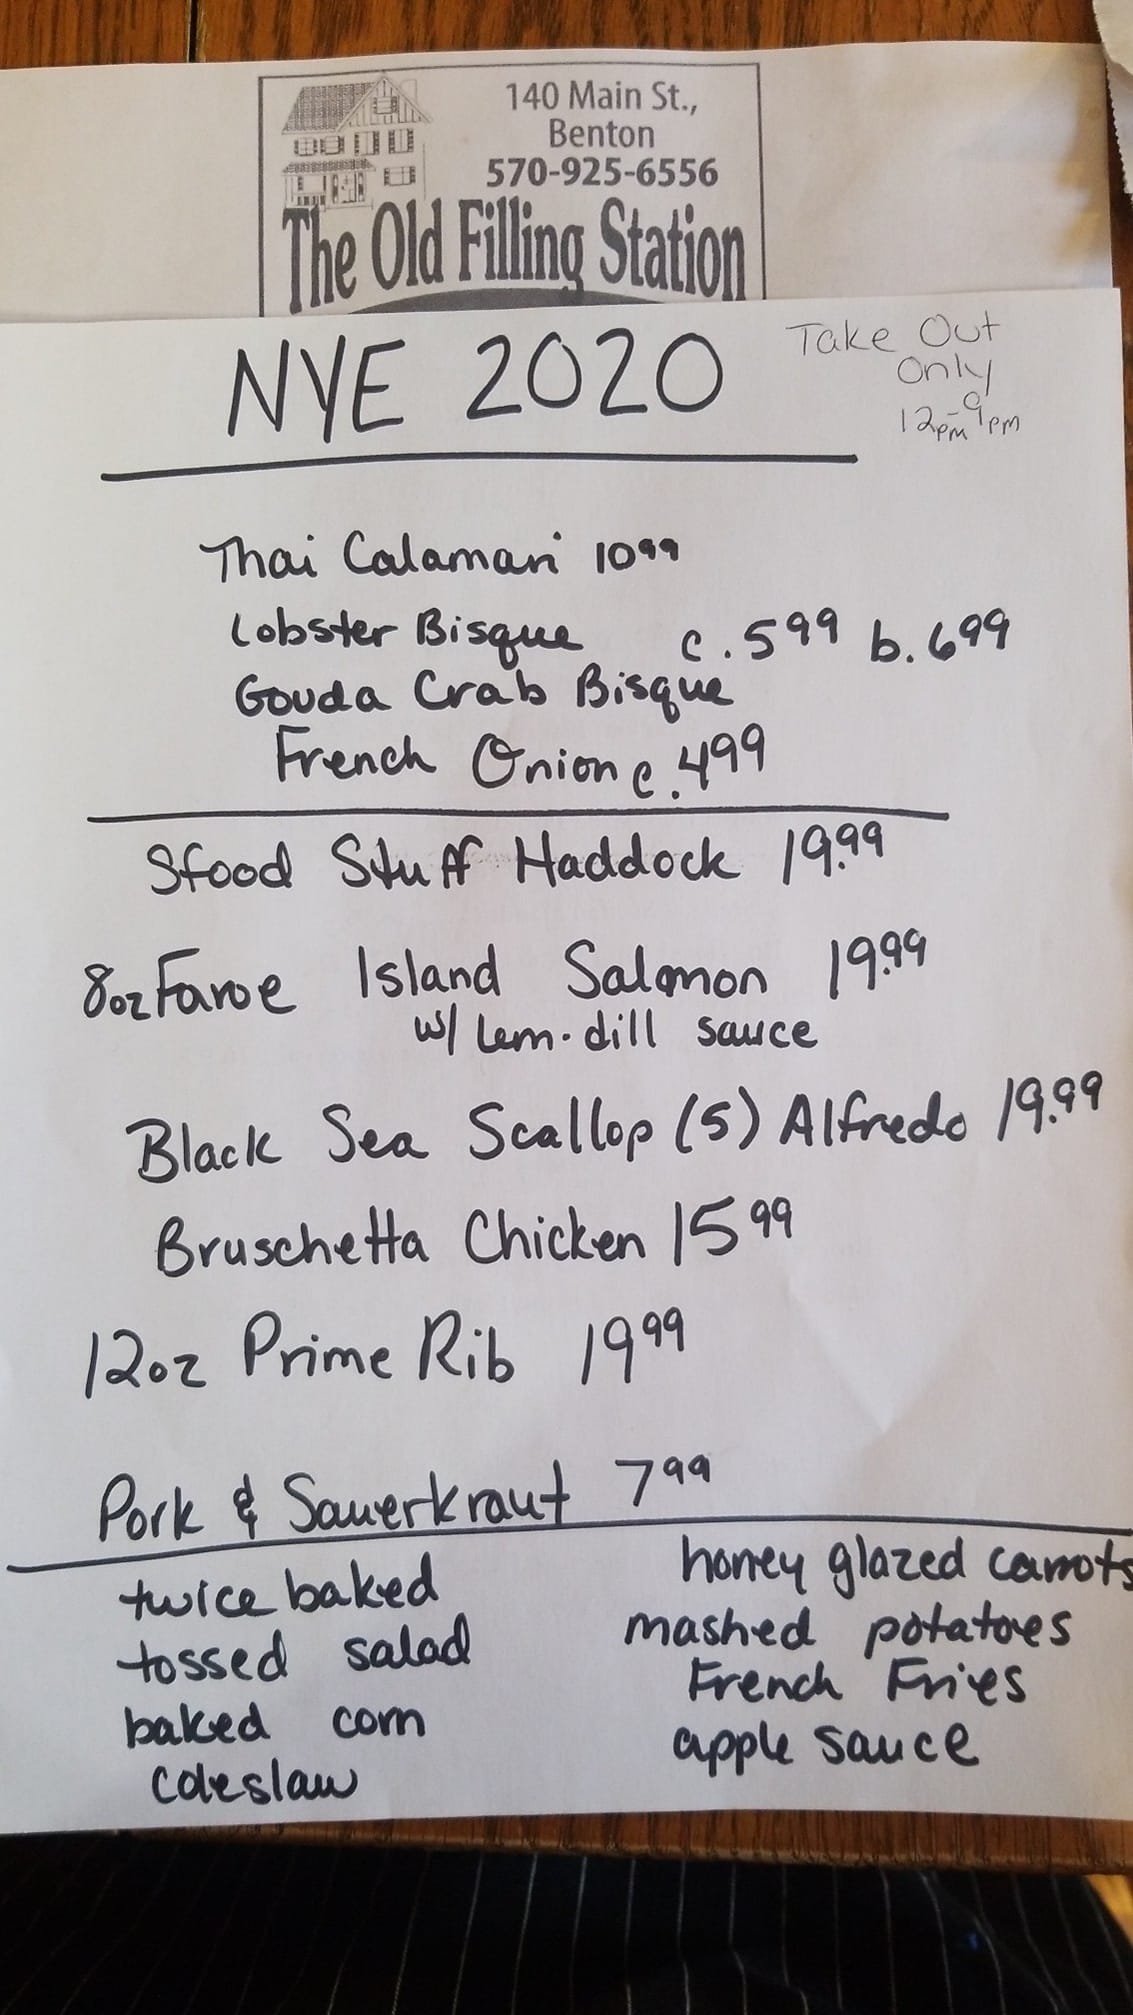 140 Main St.,
Benton
570-925-6556
The Old Filling Station
NYE 2020
Take Out
Only
12pm-9pm
Thai Calamari 10 99
Lobster Bisque c. 5 99 b. 6 99
Gouda Crab Bisque
French Onion c. 4 99
Sfood Stuff Haddock 19.99
8oz Faroe Island Salmon 19.99
w/ Lem. dill sauce
Black Sea Scallop (5) Alfredo 19.99
Bruschetta Chicken 15 99
12oz Prime Rib 19 99
Pork & Sauerkraut 7 99
twice baked
tossed salad
baked corn
coleslaw
honey glazed carrots
mashed potatoes
French Fries
apple sauce